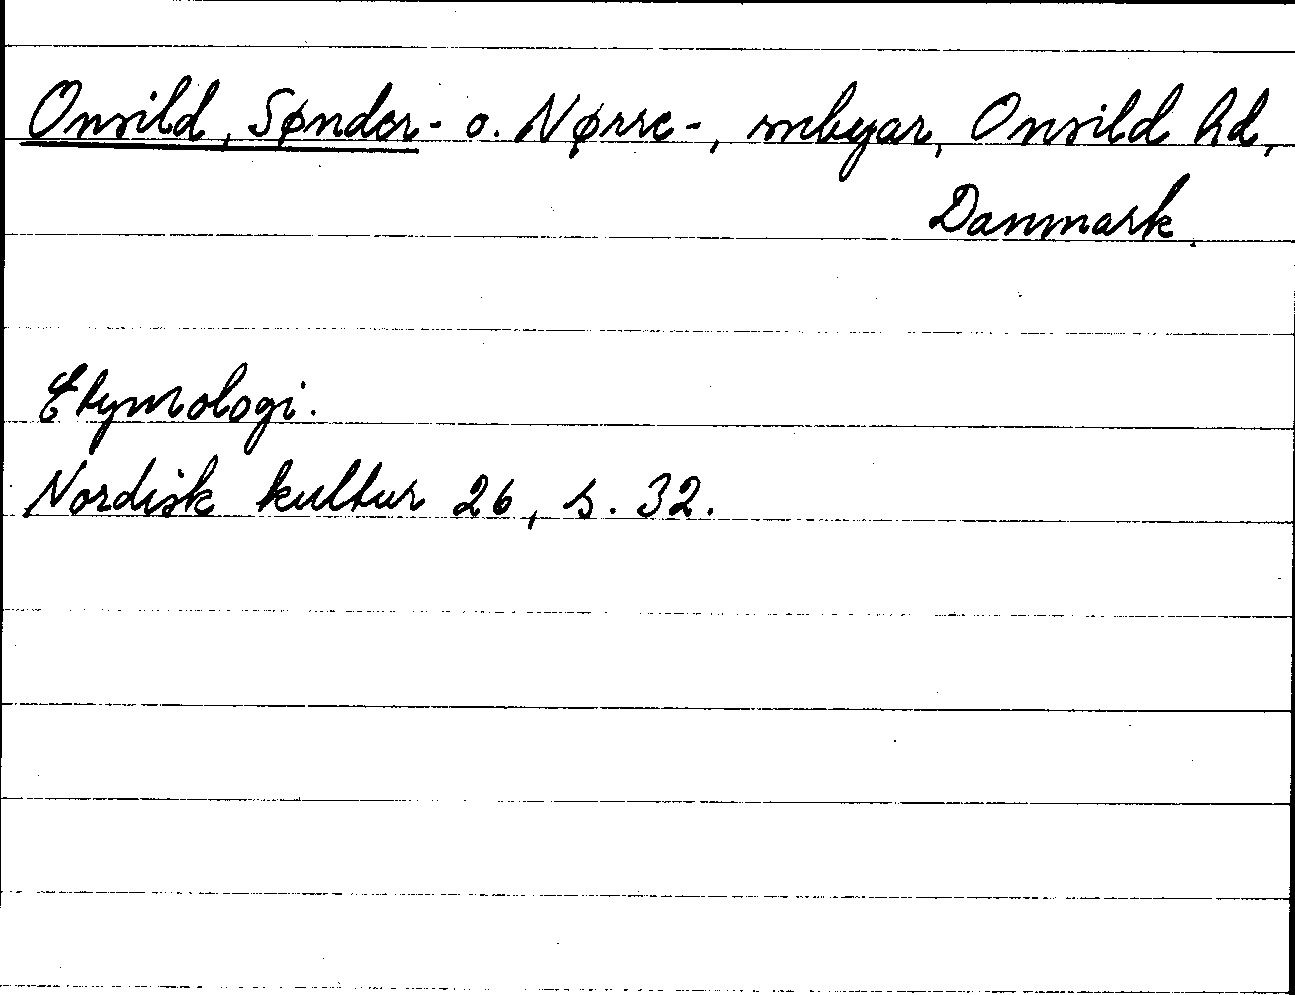 Onsild, Sønder- o. Nørre-, snbyar, Onsild hd,
Danmark.
Etymologi.
Nordisk kultur 26, s. 32.